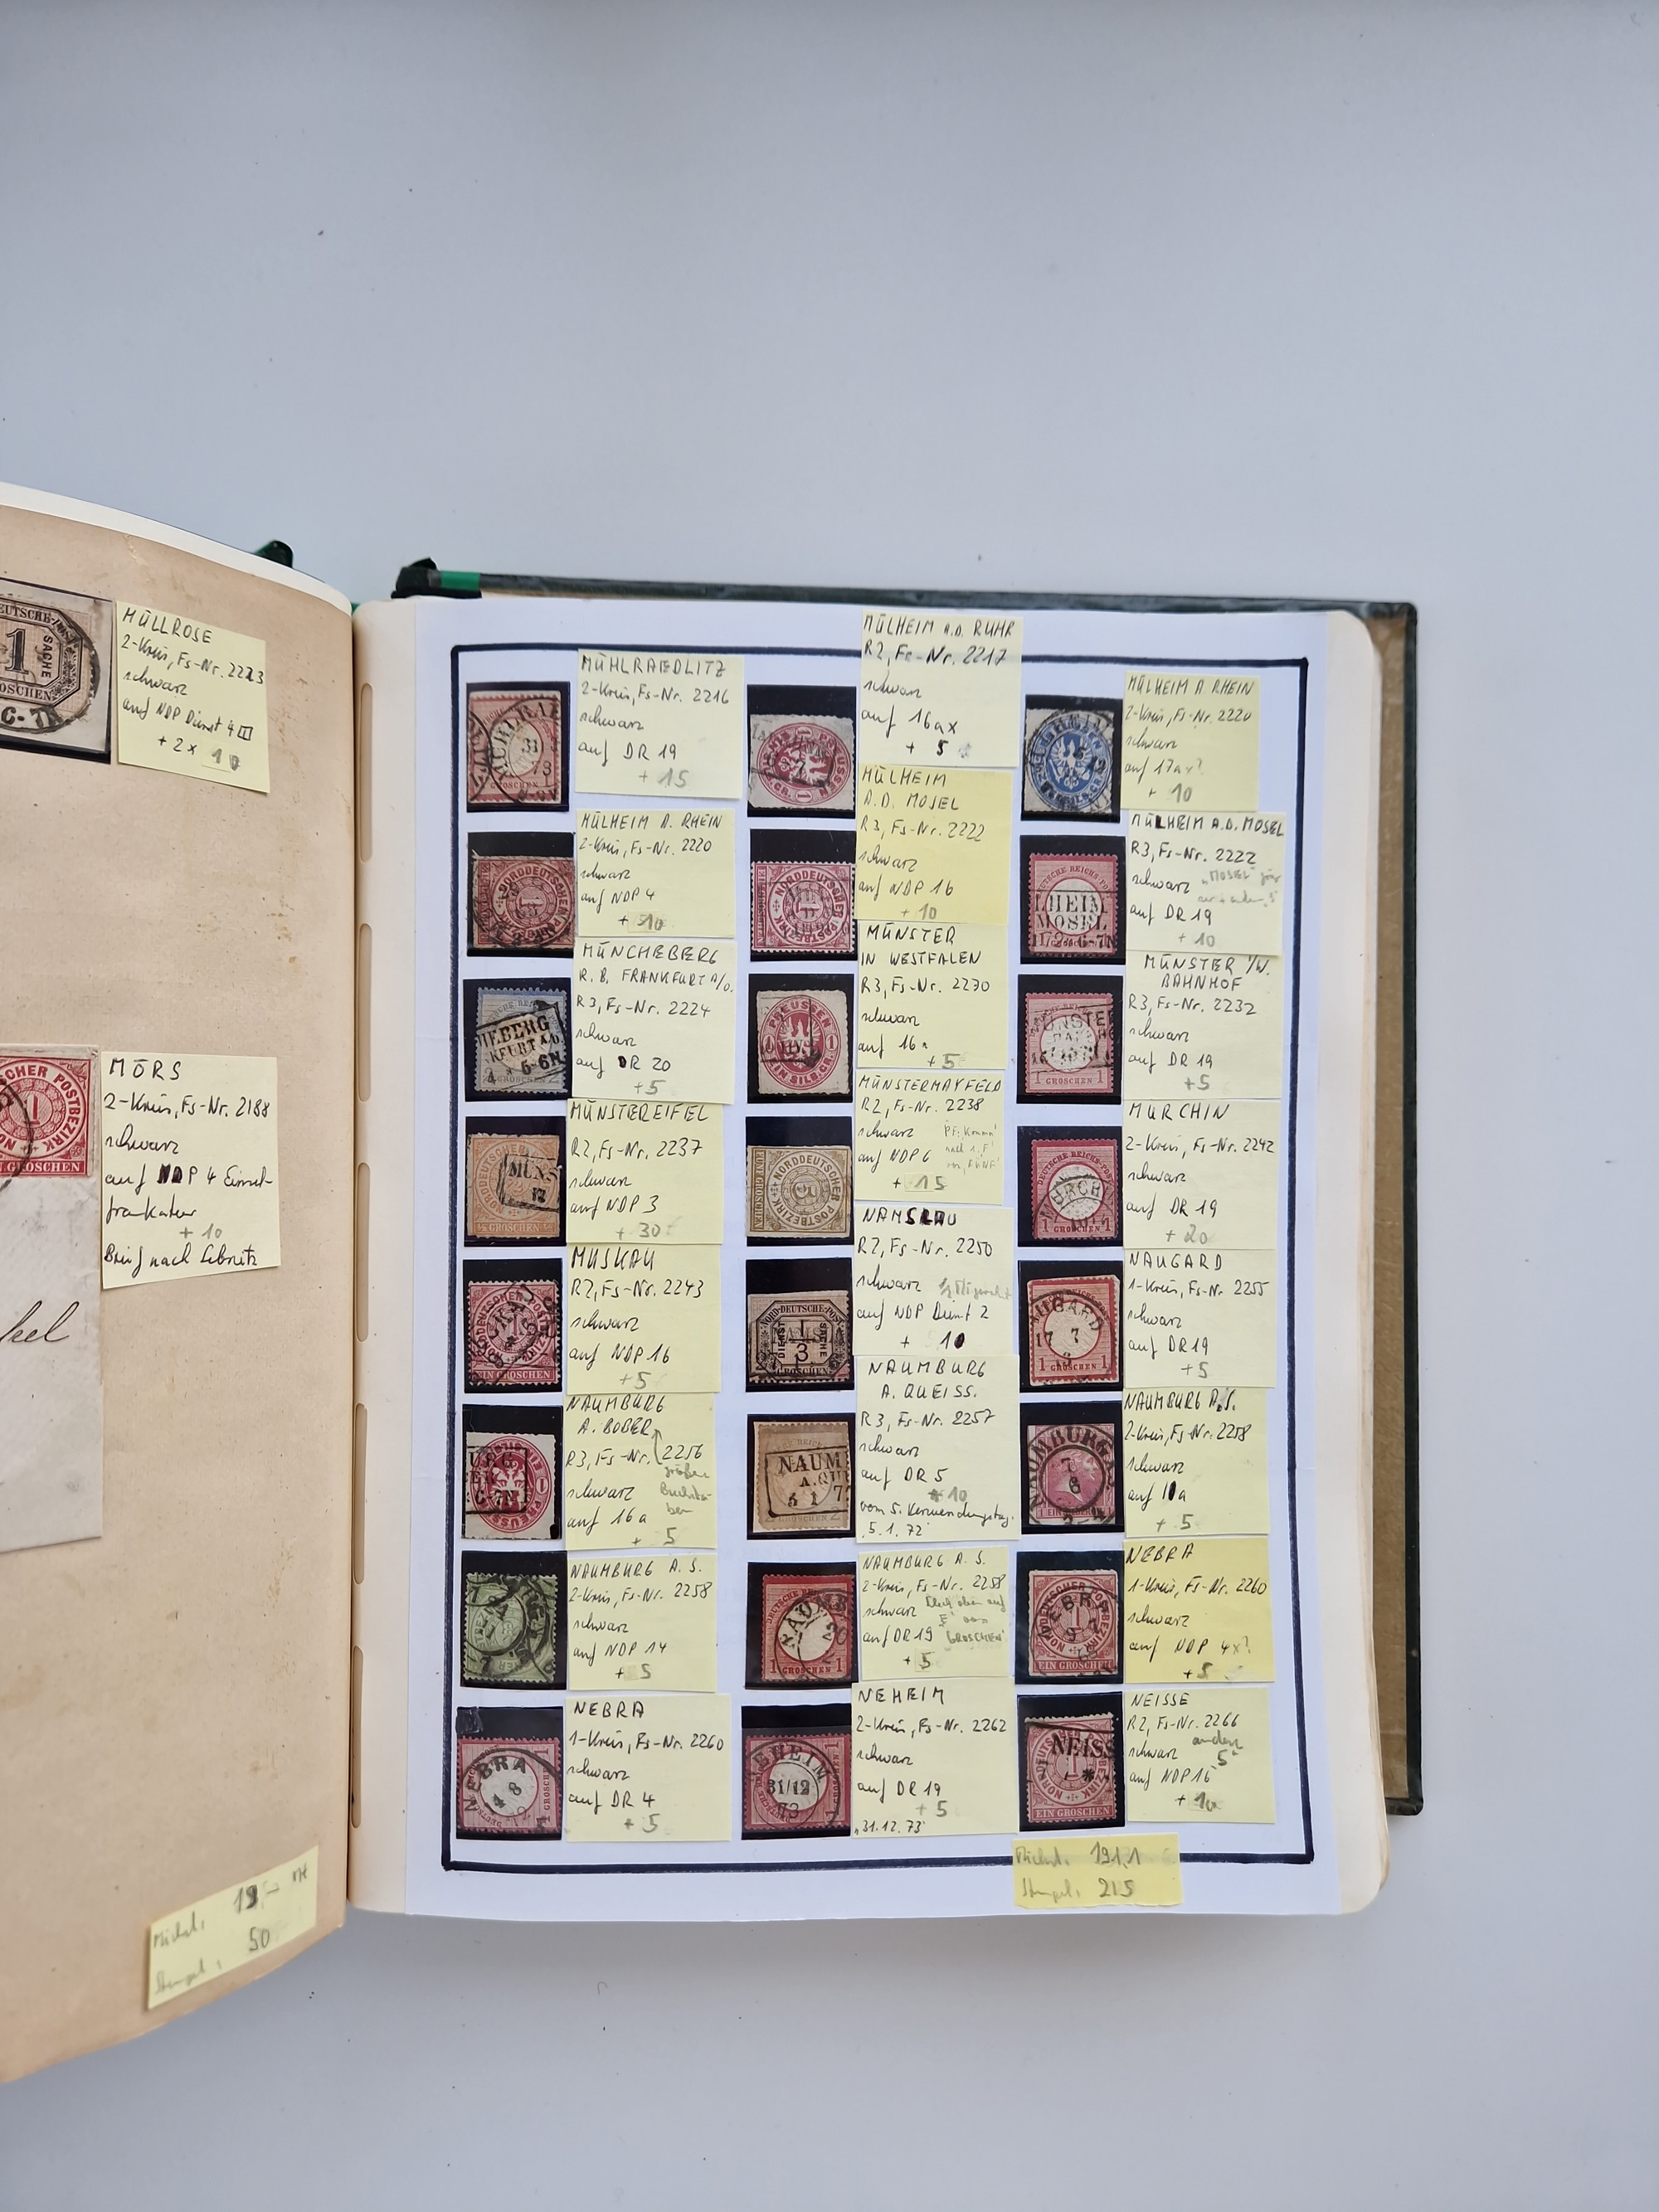 MÜLLROSE
2-Kreis, Fs-Nr. 2213
schwarz
auf NDP Dienst 4 II
+ 2x 10
MÖRS
2-Kreis, Fs-Nr. 2188
schwarz
auf NDP 4 Einzel-
frankatur
+ 10
Brief nach Lebnitz
Michel: 19,-
Stempel: 50
MÜHLRAEDLITZ
2-Kreis, Fs-Nr. 2216
schwarz
auf DR 19
+ 15
MÜLHEIM A.D. RUHR
R2, Fs-Nr. 2217
schwarz
auf 16ax
+ 5
MÜLHEIM A. RHEIN
2-Kreis, Fs-Nr. 2220
schwarz
auf 17ax?
+ 10
MÜLHEIM A. RHEIN
2-Kreis, Fs-Nr. 2220
schwarz
auf NDP 4
+ 10
MÜLHEIM
A.D. MOSEL
R3, Fs-Nr. 2222
schwarz
auf NDP 16
+ 10
MÜLHEIM A.D. MOSEL
R3, Fs-Nr. 2222
schwarz "MOSEL"
auf DR 19
+ 10
MÜNCHEBERG
R. B. FRANKFURT A/O.
R3, Fs-Nr. 2224
schwarz
auf DR 20
+ 5
MÜNSTER
IN WESTFALEN
R3, Fs-Nr. 2230
schwarz
auf 16a
+ 5
MÜNSTER I/W.
BAHNHOF
R3, Fs-Nr. 2232
schwarz
auf DR 19
+ 5
MÜNSTEREIFEL
R2, Fs-Nr. 2237
schwarz
auf NDP 3
+ 30
MÜNSTERMAYFELD
R2, Fs-Nr. 2238
schwarz
auf NDP 6
+ 15
MURCHIN
2-Kreis, Fs-Nr. 2242
schwarz
auf DR 19
+ 20
MUSKAU
R2, Fs-Nr. 2243
schwarz
auf NDP 16
+ 5
NAMSLAU
R2, Fs-Nr. 2250
schwarz
auf NDP Dienst 2
+ 10
NAUGARD
1-Kreis, Fs-Nr. 2255
schwarz
auf DR 19
+ 5
NAUMBURG
A. BOBER
R3, Fs-Nr. 2256
größere
schwarz Buchsta-
ben
auf 16a
+ 5
NAUMBURG
A. QUEISS.
R3, Fs-Nr. 2257
schwarz
auf DR 5
+ 10
vom 5. Verwendungstag
5.1.72
NAUMBURG A.S.
2-Kreis, Fs-Nr. 2258
schwarz
auf 10a
+ 5
NAUMBURG A. S.
2-Kreis, Fs-Nr. 2258
schwarz
auf NDP 14
+ 5
NAUMBURG A. S.
2-Kreis, Fs-Nr. 2258
schwarz
auf DR 19 "GROSCHEN"
+ 5
NEBRA
1-Kreis, Fs-Nr. 2260
schwarz
auf NDP 4x?
+ 5
NEBRA
1-Kreis, Fs-Nr. 2260
schwarz
auf DR 4
+ 5
NEHEIM
2-Kreis, Fs-Nr. 2262
schwarz
auf DR 19
+ 5
"31.12.73"
NEISSE
R2, Fs-Nr. 2266
schwarz
auf NDP 16
+ 10
Michel: 191,1
Stempel: 215